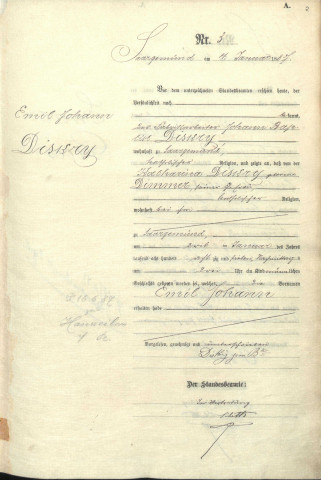 A.
Nr.
Saargemünd, am 4. Januar 1887.
Vor dem unterzeichneten Standesbeamten erschien heute, der
Persönlichkeit nach
kannt,
Johann Bap-
tist Diswry
wohnhaft zu Saargemünd
katholischer Religion, und zeigte an, daß von der
Katharina Diswry geborene
Dimmer, seiner Ehefrau,
katholischer Religion,
wohnhaft bei ihm
zu Saargemünd,
am drei ten Januar des Jahres
tausend acht hundert achtzig und sieben Nachmittags
um drei Uhr ein Kind männlichen
Geschlechts geboren worden sei, welches die Vornamen
Emil Johann
erhalten habe
Vorgelesen, genehmigt und unterschrieben
Der Standesbeamte:
In Vertretung
Emil Johann
Diswry